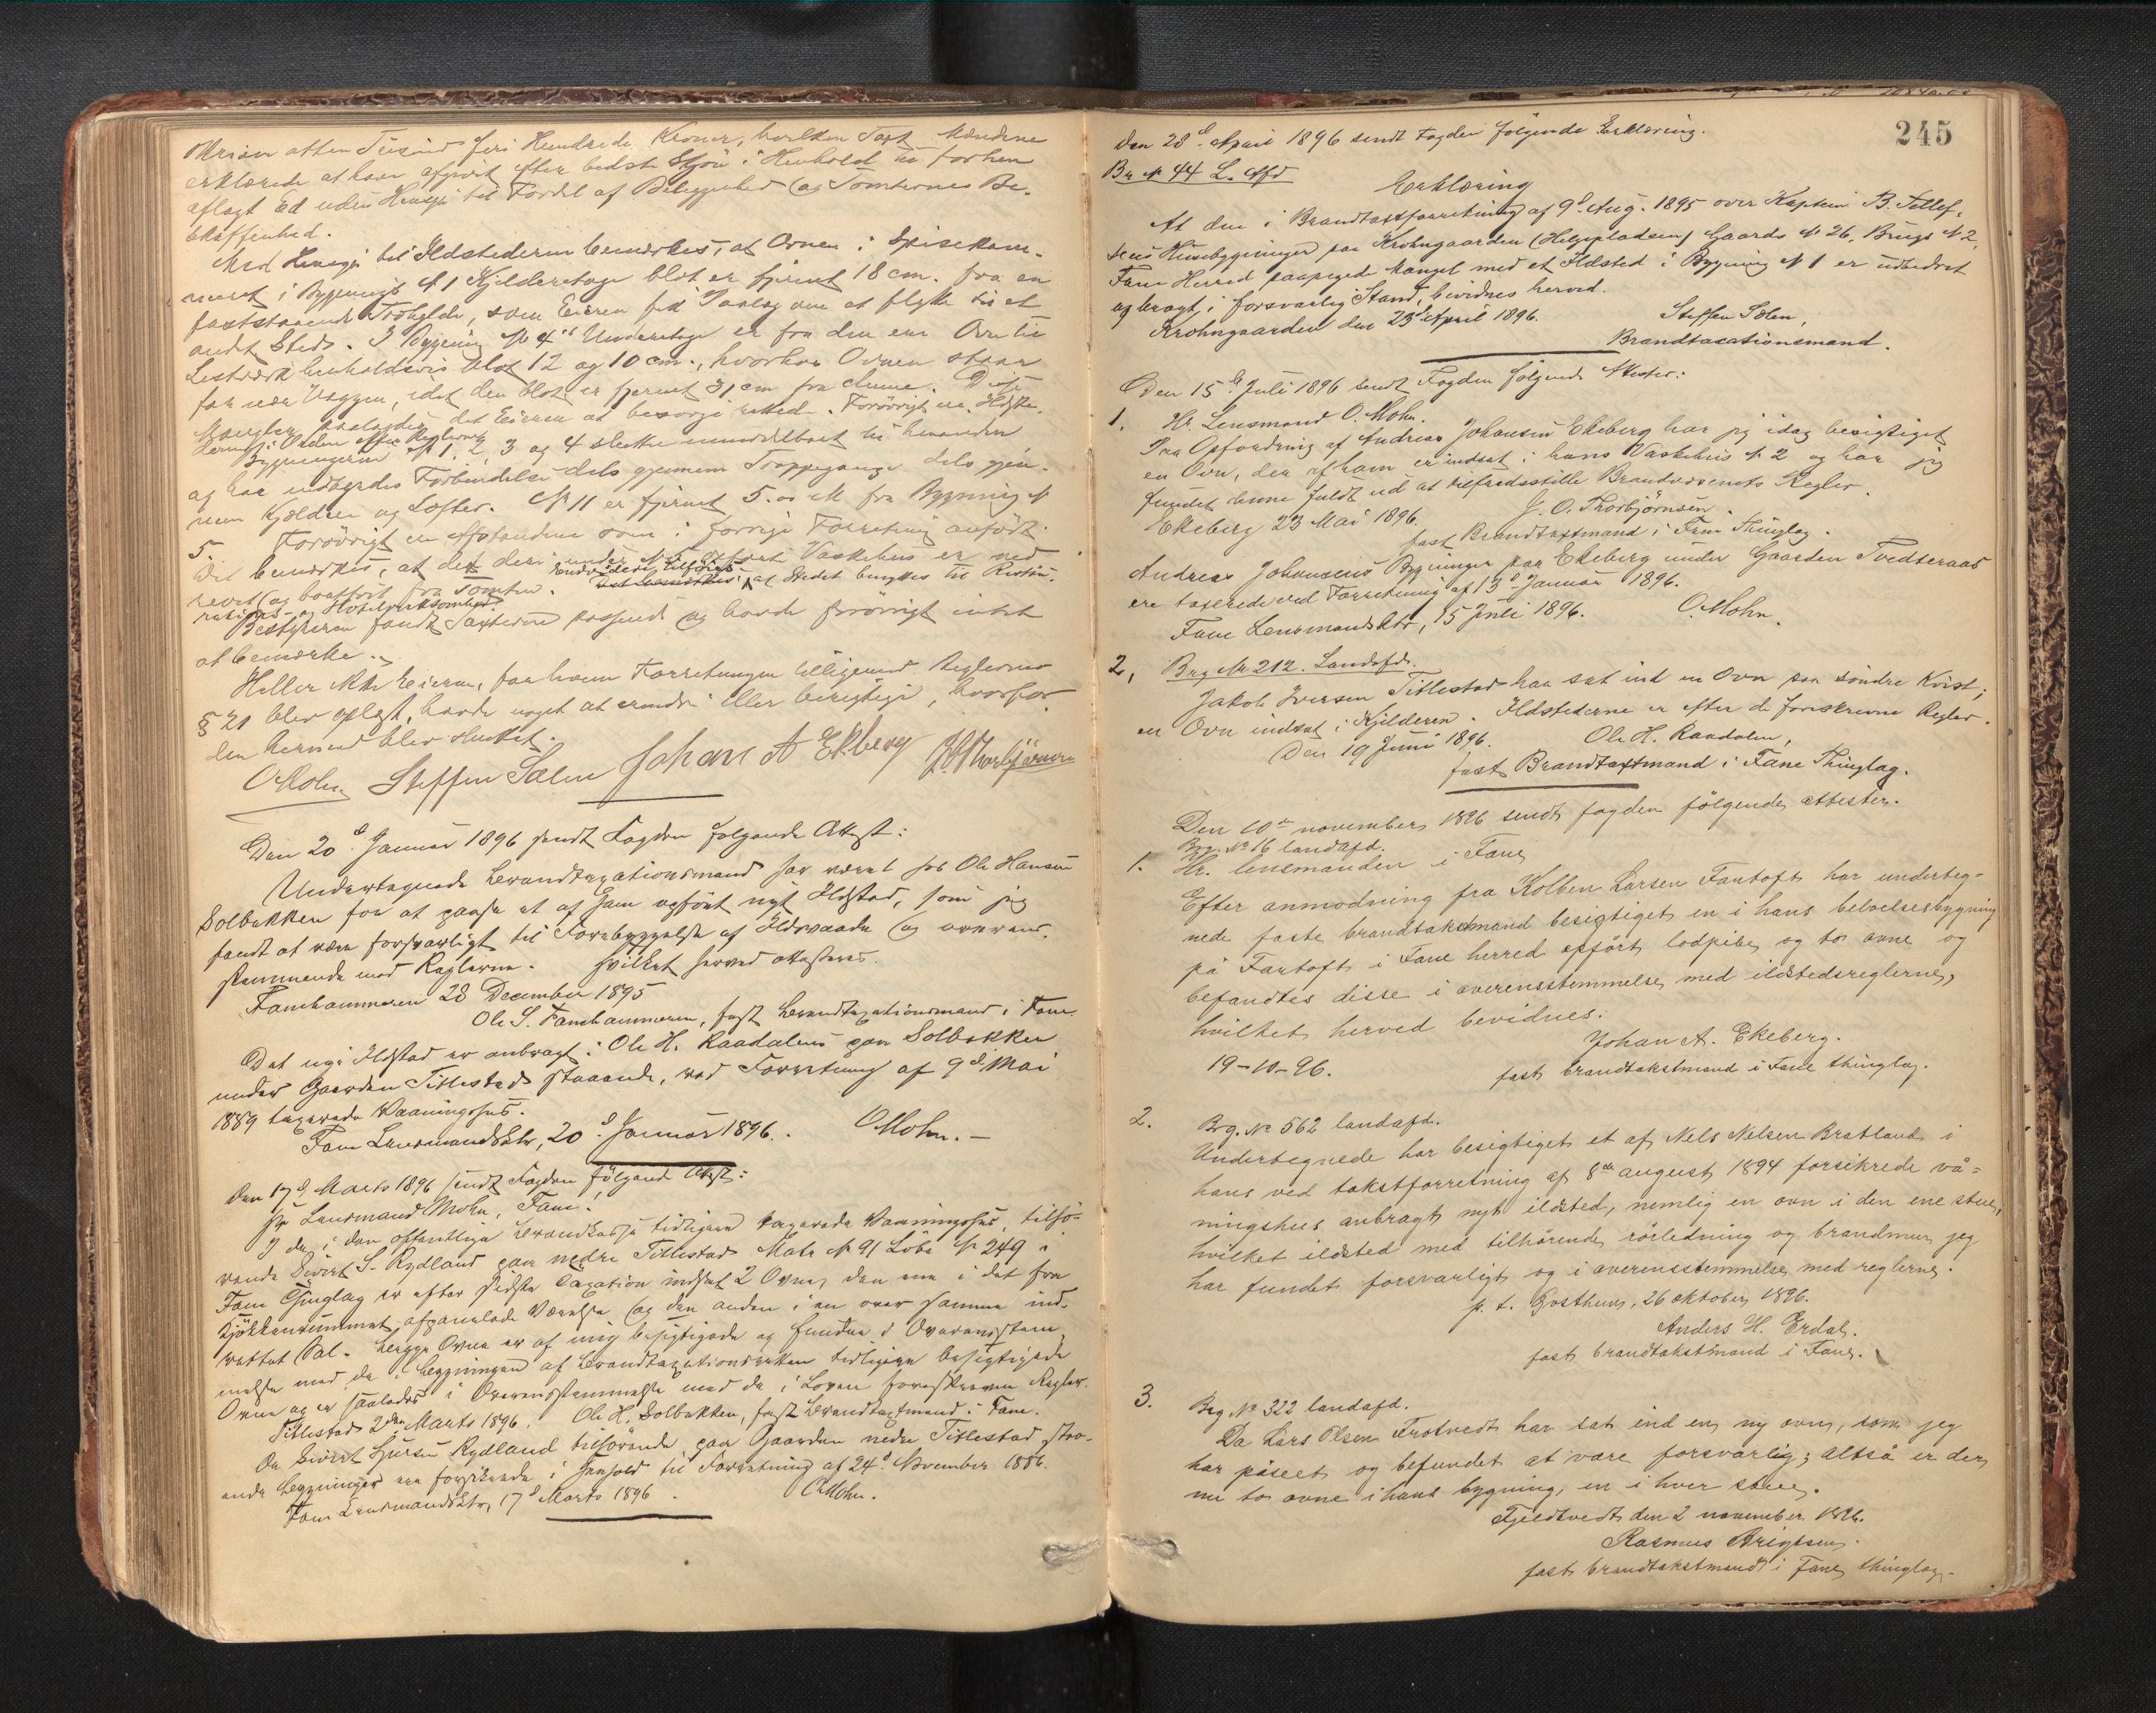 skriver atten Tusind fem Hundrede Kroner, hvilken Taxt Mændene
erklærede at have afgivet efter bedste Skjön i Henhold til forhen
aflagt Ed uden Hensyn til Fordel af Beliggenhed og Tomternes Be-
skaffenhed.
Med Hensyn til Ildstederne bemærkes, at Ovnen i Spisekam-
meret i Bygning № 1 Kjelderetage blot er fjernet 18 cm. fra en
faststaaende Træhylde, som Eieren fik Paalæg om at flytte til et
andet Sted. I Bygning № 4 Underetage er fra den ene Ovn til
Listværk henholdsvis blot 12 og 10 cm., hvorhos Ovnen staar
for nær Væggen, idet den blot er fjernet 31 cm fra denne. Disse
Mangler paalagdes det Eieren at besørge rettede. Forövrigt ere Ildste-
derne i Orden efter Reglerne
Bygningerne № 1, 2, 3 og 4 slutte umiddelbart til hinanden
og har indbyrdes Forbindelse dels gjennem Trappegange dels gjen-
nem Kjeldere og Lofter. № 11 er fjernet 5.00 M fra Bygning №
5. Forövrigt er Afstandene som i forrige Forretning anfört.
Det bemærkes, at det deri under № 5 anførte Vaskehus er ned
revet og bortfört fra Tomten. at Stedet benyttes til Restau-
rations- og Hotelvirksomhed.
Bestyreren fandt Taxterne passende og havde forövrigt intet
at bemærke.
Heller ikke Eieren, for hvem Forretningen tilligemed Reglernes
§ 21 blev oplæst, havde noget at erindre eller berigtige, hvorfor
den hermed blev sluttet.
O Mohn Steffen Sælen Johan A Ekberg J O Thorbjörnsen
Den 20d. Januar 1896 sendt Fogden følgende Attest:
Undertegnede Brandtaxationsmand har været hos Ole Hansen
Solbakken for at paase et af ham opført nyt Ildsted, som jeg
fandt at være forsvarligt til Forebyggelse af Ildsvaade og overens-
stemmende med Reglerne. Hvilket herved attesteres.
Fanehammeren 28 December 1895
Ole S. Fanehammeren, fast Brandtaxationsmand i Fane.
Det nye Ildsted er anbragt i Ole H. Raadalens paa Solbakken
under Gaarden Titlestad staaende, ved Forretning af 9d. Mai
1889 taxerede Vaaningshus.
Fane Lensmandsktr, 20d. Januar 1896. O Mohn.
Den 17d. Marts 1896 sendt Fogden følgende Attest:
Hr Lensmand Mohn, Fane!
I de i den offentlige Brandkasse tidligere taxerede Vaaningshus, tilhö-
rende Sivert S. Rydland paa nedre Titlestad Matr № 91 Löbe № 249 i
Fane Thinglag er efter sidste Taxation indsat 2 Ovne, den ene i det fra
Kjökkenrummet afpanelede Værelse og den anden i en over samme ind-
rettet Sal. Begge Ovne er af mig besigtigede og fundne i Overensstem-
melse med de i Bygningen af Brandtaxationsretten tidligere besigtigede
Ovne og er saaledes i Overensstemmelse med de i Loven foreskrevne Regler.
Titlestad 2den Marts 1896. Ole H. Solbakken, fast Brandtaxtmand i Fane.
De Sivert Sjursen Rydland tilhörende, paa Gaarden nedre Titlestad staa-
ende Bygninger ere forsikrede i Henhold til Forretning af 24d. November 1886.
Fane Lensmandsktr, 17d Marts 1896. O Mohn.
245
Den 28d. April 1896 sendt Fogden følgende Erklæring.
Br № 44 L. Afd
Erklæring
At den i Brandtaxtforretning af 9d. Aug. 1895 over Kaptein B. Tellef-
sens Husebygninger paa Krohngaarden (Helgepladsen) Gaards № 26, Brugs № 2,
Fane Herred paapegede Mangel med et Ildsted i Bygning № 1 er udbedret
og bragt i forsvarlig Stand, bevidnes herved.
Krohngaarden den 23d April 1896. Steffen Sælen,
Brandtaxationsmand.
Den 15de Juli 1896 sendt Fogden følgende Attester:
1. Hr. Lensmand O. Mohn.
Paa Opfordring af Andreas Johansen Ekeberg har jeg idag besigtiget
en Ovn, der af ham er indsat i hans Vaskehus № 2 og har jeg
fundet denne fuldt ud at tilfredsstille Brandvæsenets Regler.
Ekeberg 23 Mai 1896. J. O. Thorbjörnsen.
fast Brandtaxtmand i Fane Thinglag.
Andreas Johansens Bygninger paa Ekeberg under Gaarden Tvedteraas
ere taxerede ved Forretning af 13d Januar 1896.
Fane Lensmandsktr, 15 Juli 1896. O. Mohn.
2, Brg № 212. Landafd.
Jakob Iversen Titlestad har sat ind en Ovn paa söndre Kvist;
en Ovn indsat i Kjelderen. Ildstederne er efter de foreskrevne Regler.
Den 19 Juni 1896. Ole H. Raadalen,
fast Brandtaxtmand i Fane Thinglag.
Den 10de november 1896 sendt fogden fölgende attester.
Brg. № 16 landafd.
1. Hr. lensmanden i Fane
Efter anmodning fra Kolben Larsen Fantoft har underteg-
nede faste brandtakstmand besigtiget en i hans beboelsesbygning
på Fantoft i Fane herred opfört lodpibe og to ovne og
befandtes disse i overensstemmelse med ildstedsreglerne,
hvilket herved bevidnes.
19-10-96. Johan A. Ekeberg.
fast brandtakstmand i Fane thinglag.
2. Brg. № 562 landafd.
Undertegnede har besigtiget et af Nels Nelsen Bratland i
hans ved takstforretning af 8de august 1894 forsikrede vå-
ningshus anbragt nyt ildsted, nemlig en ovn i den ene stue,
hvilket ildsted med tilhörende rörledning og brandmur jeg
har fundet forsvarligt og i overensstemmelse med reglerne.
p. t. Grosthun, 26 oktober 1896.
Anders H. Erdal.
fast brandtakstmand i Fane.
3. Brg № 322 landafd.
Da Lars Olsen Frotvedt har sat ind en ny ovn, som jeg
har påseet og befundet at være forsvarlig; altså er der
nu to ovne i hans bygning, en i hver stue.
Fjeldtvedt den 2 november 1896.
Rasmus
fast brandtakstmand i Fane thinglag.